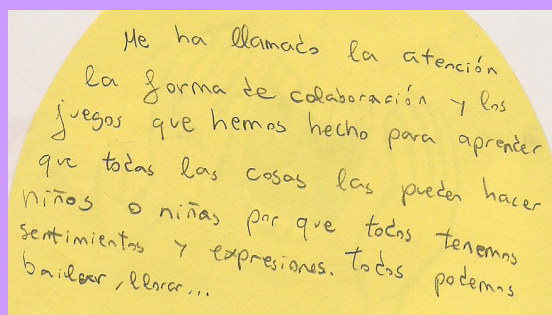 Me ha llamado la atención
la forma de colaboración y los
juegos que hemos hecho para aprender
que todas las cosas las pueden hacer
niños o niñas por que todos tenemos
sentimientos y expresiones. Todos podemos
bailar, llorar...